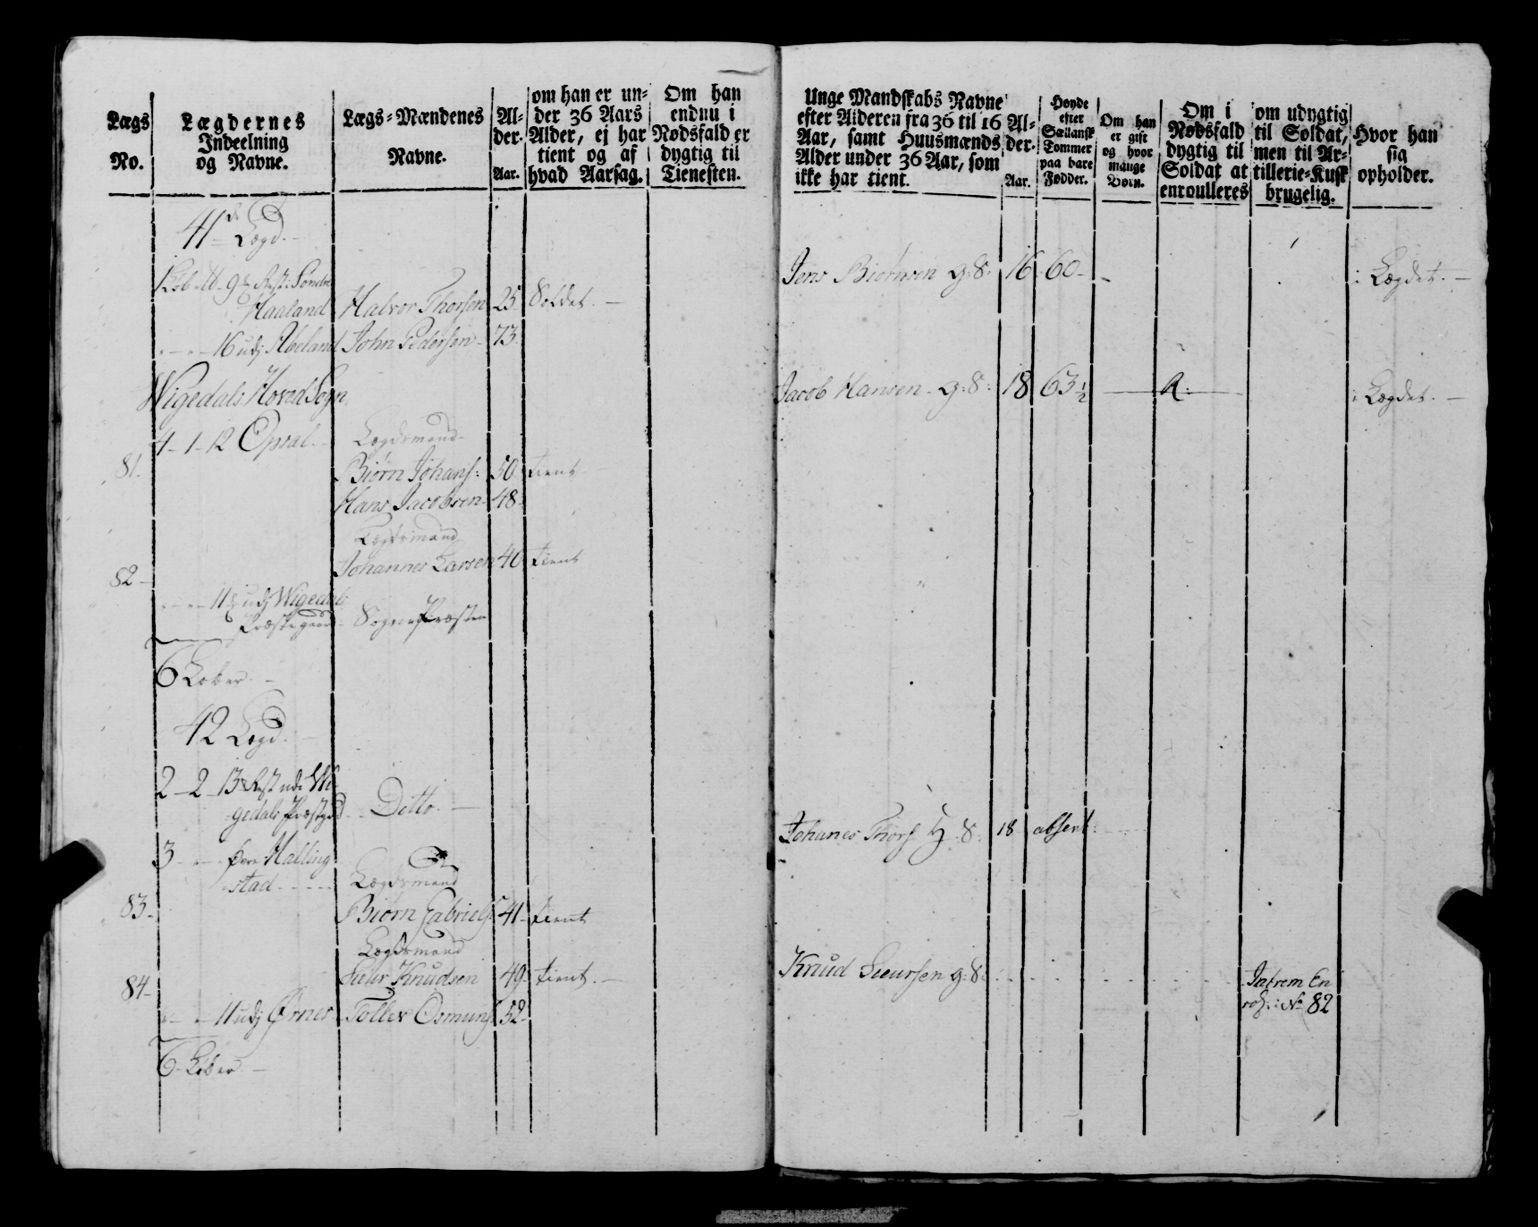 Lægs
No.
Lægdernes
Indeelning
og Navne.
Lægs-Mændenes
Navne.
Al-
der.
Aar.
om han er un-
der 36 Aars
Alder, ej har
tient og af
hvad Aarsag.
Om han
endnu i
Nødsfald er
dygtig til
Tienesten.
41 Lægd.
9 Søndre
Haaland Halvor Thorsen 25 Soldat.
16 udj John Pedersen 73.
Wigedals Hoved Sogn
4-1-12 Opsal. Lægdsmand
81. Biørn Johans: 50 tient
Hans Jacobsen 48.
Lægdsmand
82 Johannes Larsen 40 tient
11 udj Wigedals
Præstegaard Sogne Præsten
6 Løber.
42 Lægd.
2-2-13 Rest udi Wi
gedals Præstgrd Ditto.
3 Halling
stad Lægdsmand
83. Biørn Gabriels 41 tient
Lægdsmand
84 Knudsen 49. tient.
11 udj Ørnes Tollev Osmuns 52
6 Løber
Unge Mandskabs Navne
efter Alderen fra 36 til 16
Aar, samt Huusmænds
Alder under 36 Aar, som
ikke har tient.
Al-
der.
Aar.
Høyde
efter
Siællansk
Tommer
paa bare
Fødder.
Om han
er gift
og hvor
mange
Børn.
Om i
Nødsfald
dygtig til
Soldat at
enroulleres
om udygtig
til Soldat,
men til Ar-
tillerie-Kusk
brugelig.
Hvor han
sig
opholder.
Jens Biørnsen g: S: 16 60 i Lægdet.
Jacob Hansen g: S: 18 63 1/2 R: i Lægdet.
Johanes Thors S. 18 absent
Knud Sieursen g: S: En
No 82